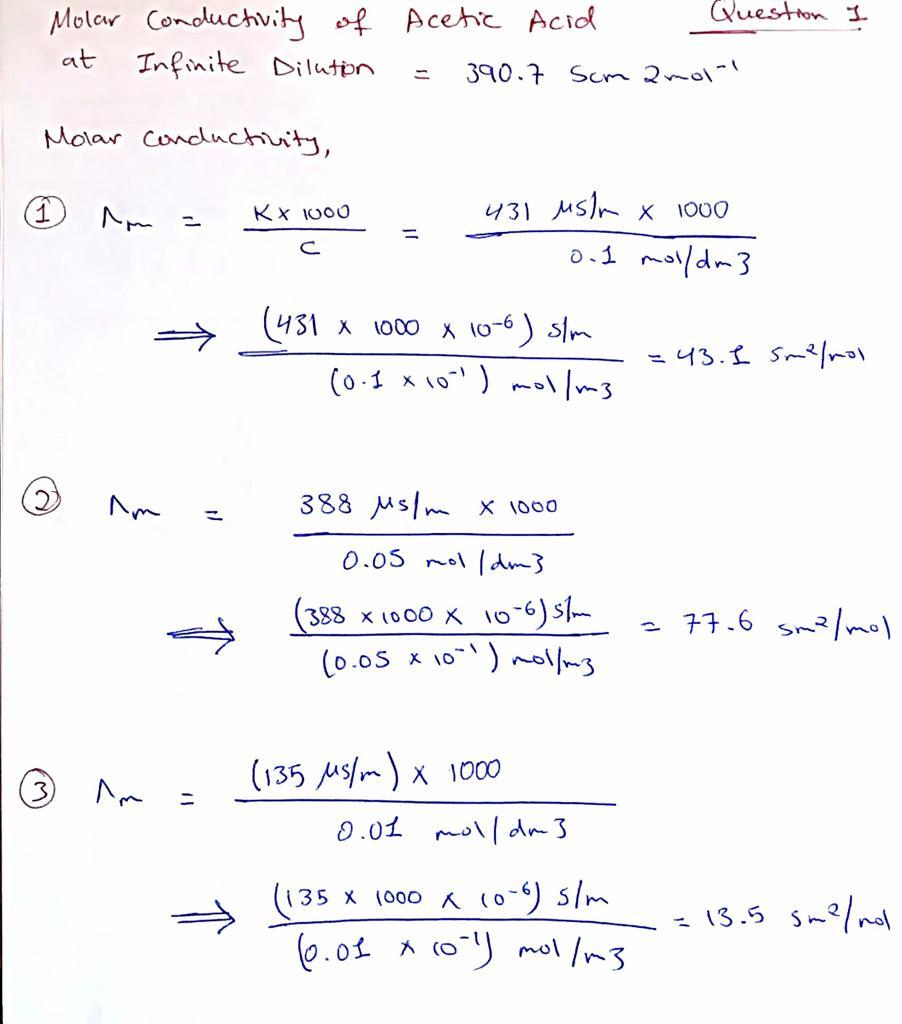 Molar Conductivity of Acetic Acid Question 1
at Infinite Dilution = 390.7 Scm 2mol-1
Molar conductivity,
① Λm = K x 1000 / C = 431 μs/m x 1000 / 0.1 mol/dm3
⟹ (431 x 1000 x 10-6) s/m / (0.1 x 10-1) mol/m3 = 43.1 sm2/mol
② Λm = 388 μs/m x 1000 / 0.05 mol/dm3
⟹ (388 x 1000 x 10-6) s/m / (0.05 x 10-1) mol/m3 = 77.6 sm2/mol
③ Λm = (135 μs/m) x 1000 / 0.01 mol/dm3
⟹ (135 x 1000 x 10-6) s/m / (0.01 x 10-1) mol/m3 = 13.5 sm2/mol